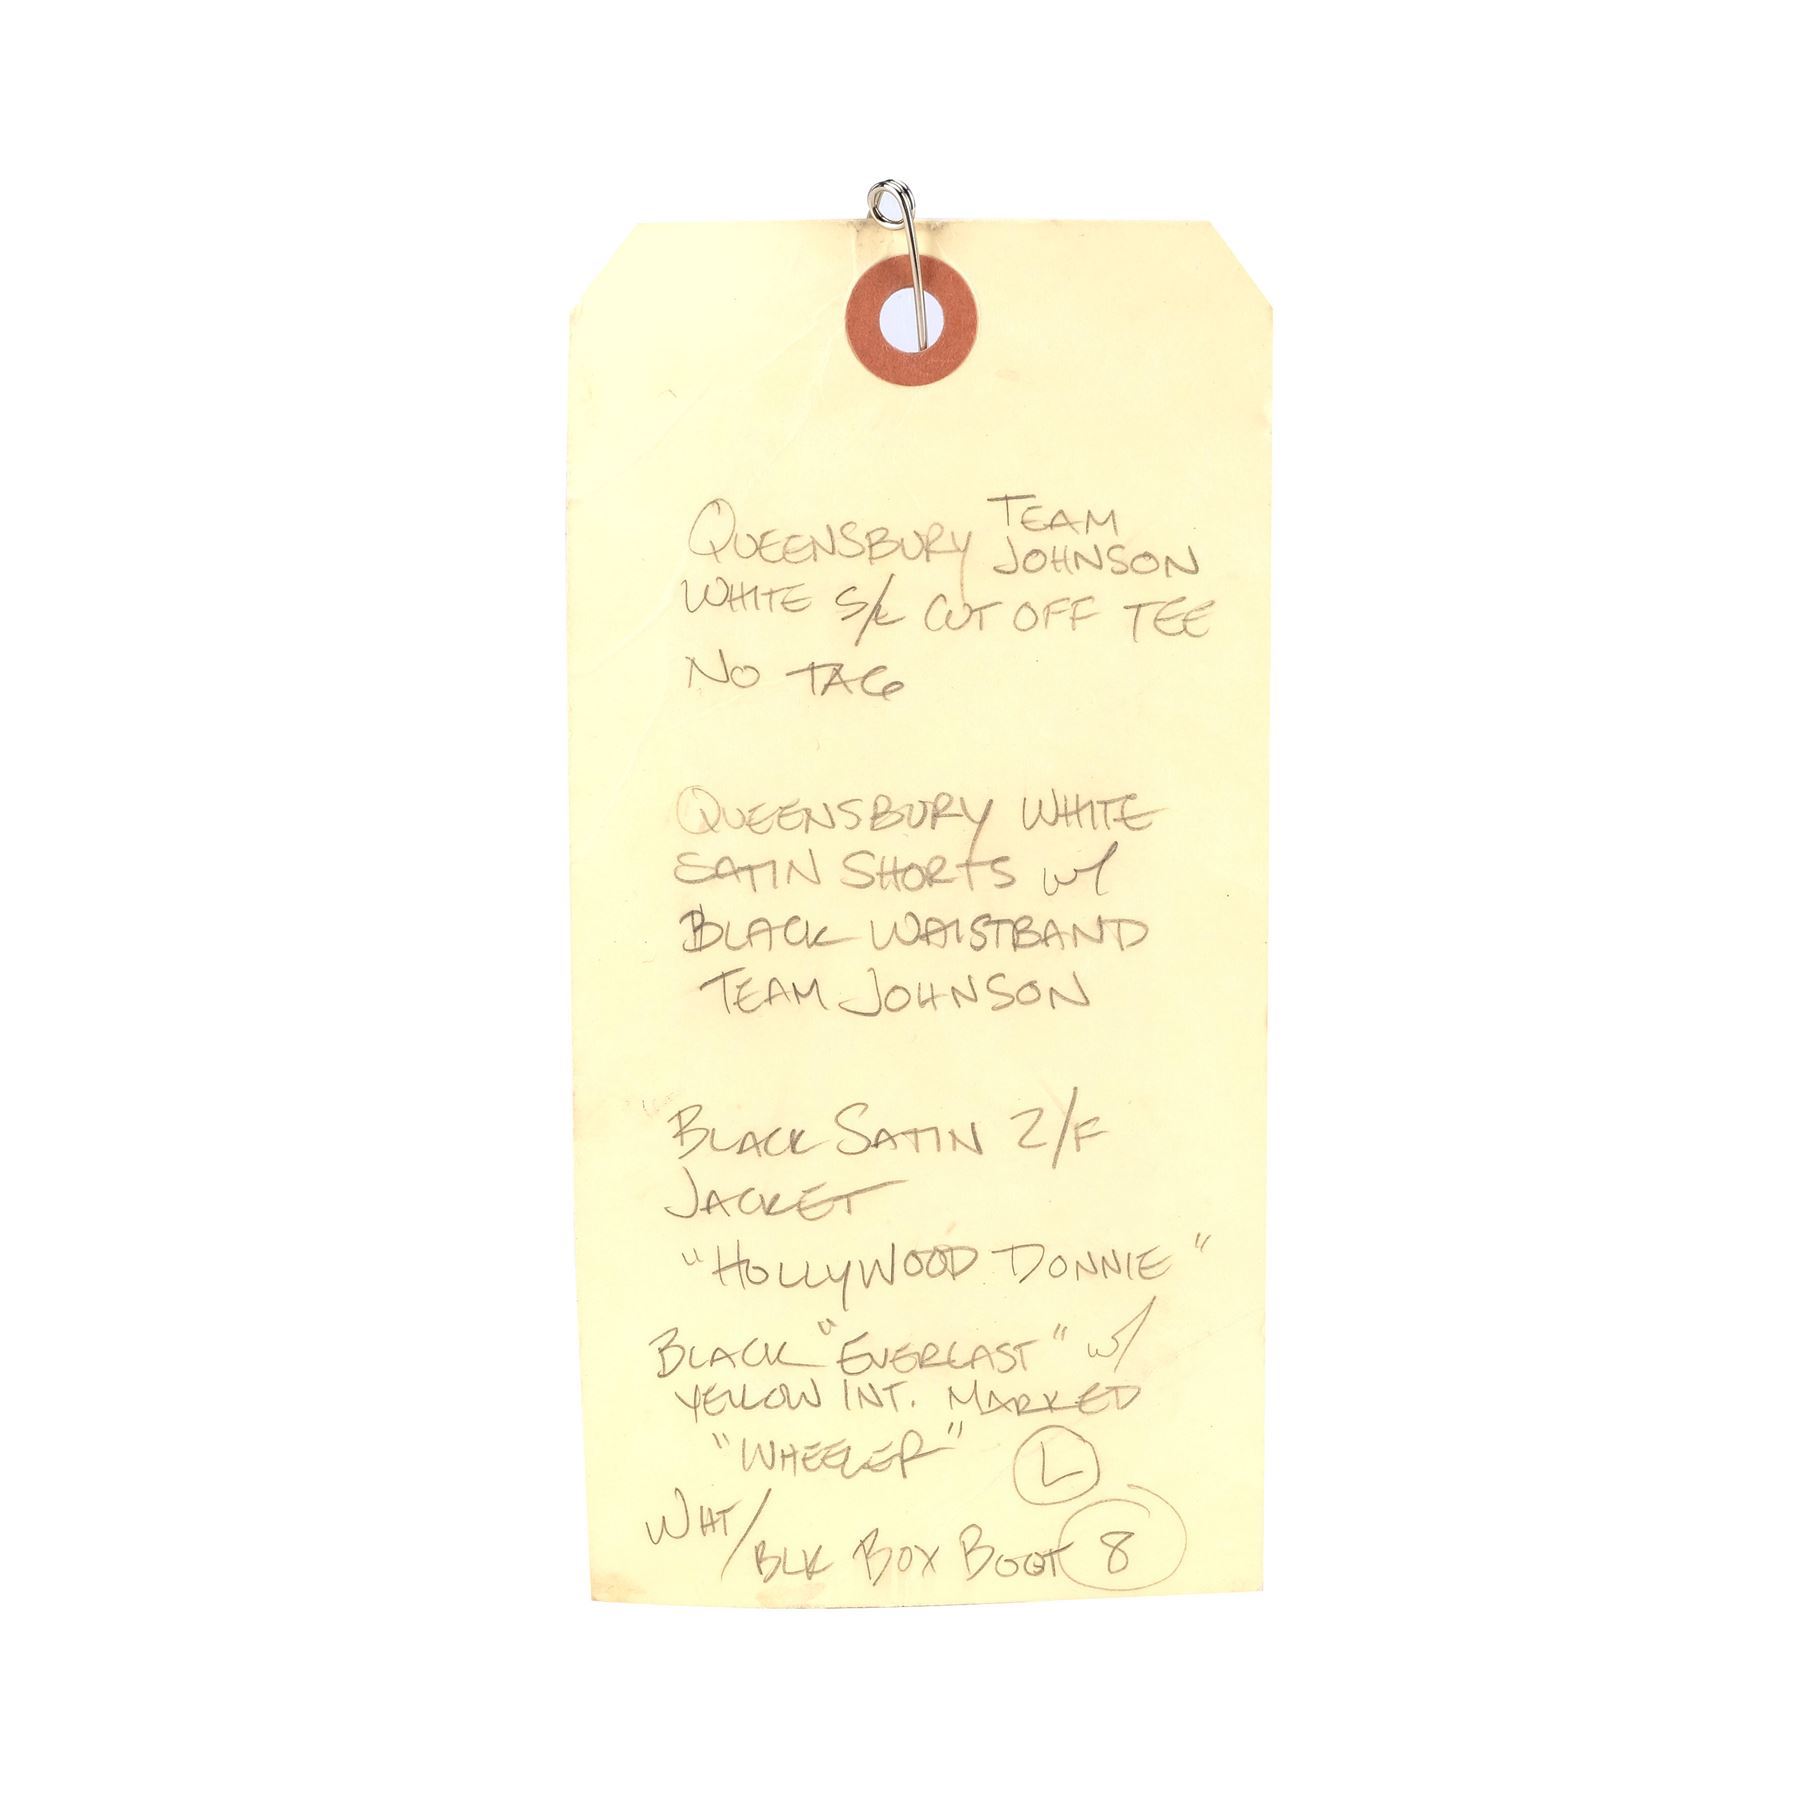 QUEENSBURY TEAM JOHNSON
WHITE S/L CUT OFF TEE
NO TAG
QUEENSBURY WHITE
SATIN SHORTS w/
BLACK WAISTBAND
TEAM JOHNSON
BLACK SATIN Z/F
JACKET
"HOLLYWOOD DONNIE"
BLACK "EVERLAST" w/
YELLOW INT. MARKED
"WHEELER" L
WHT/BLK BOX BOOT 8